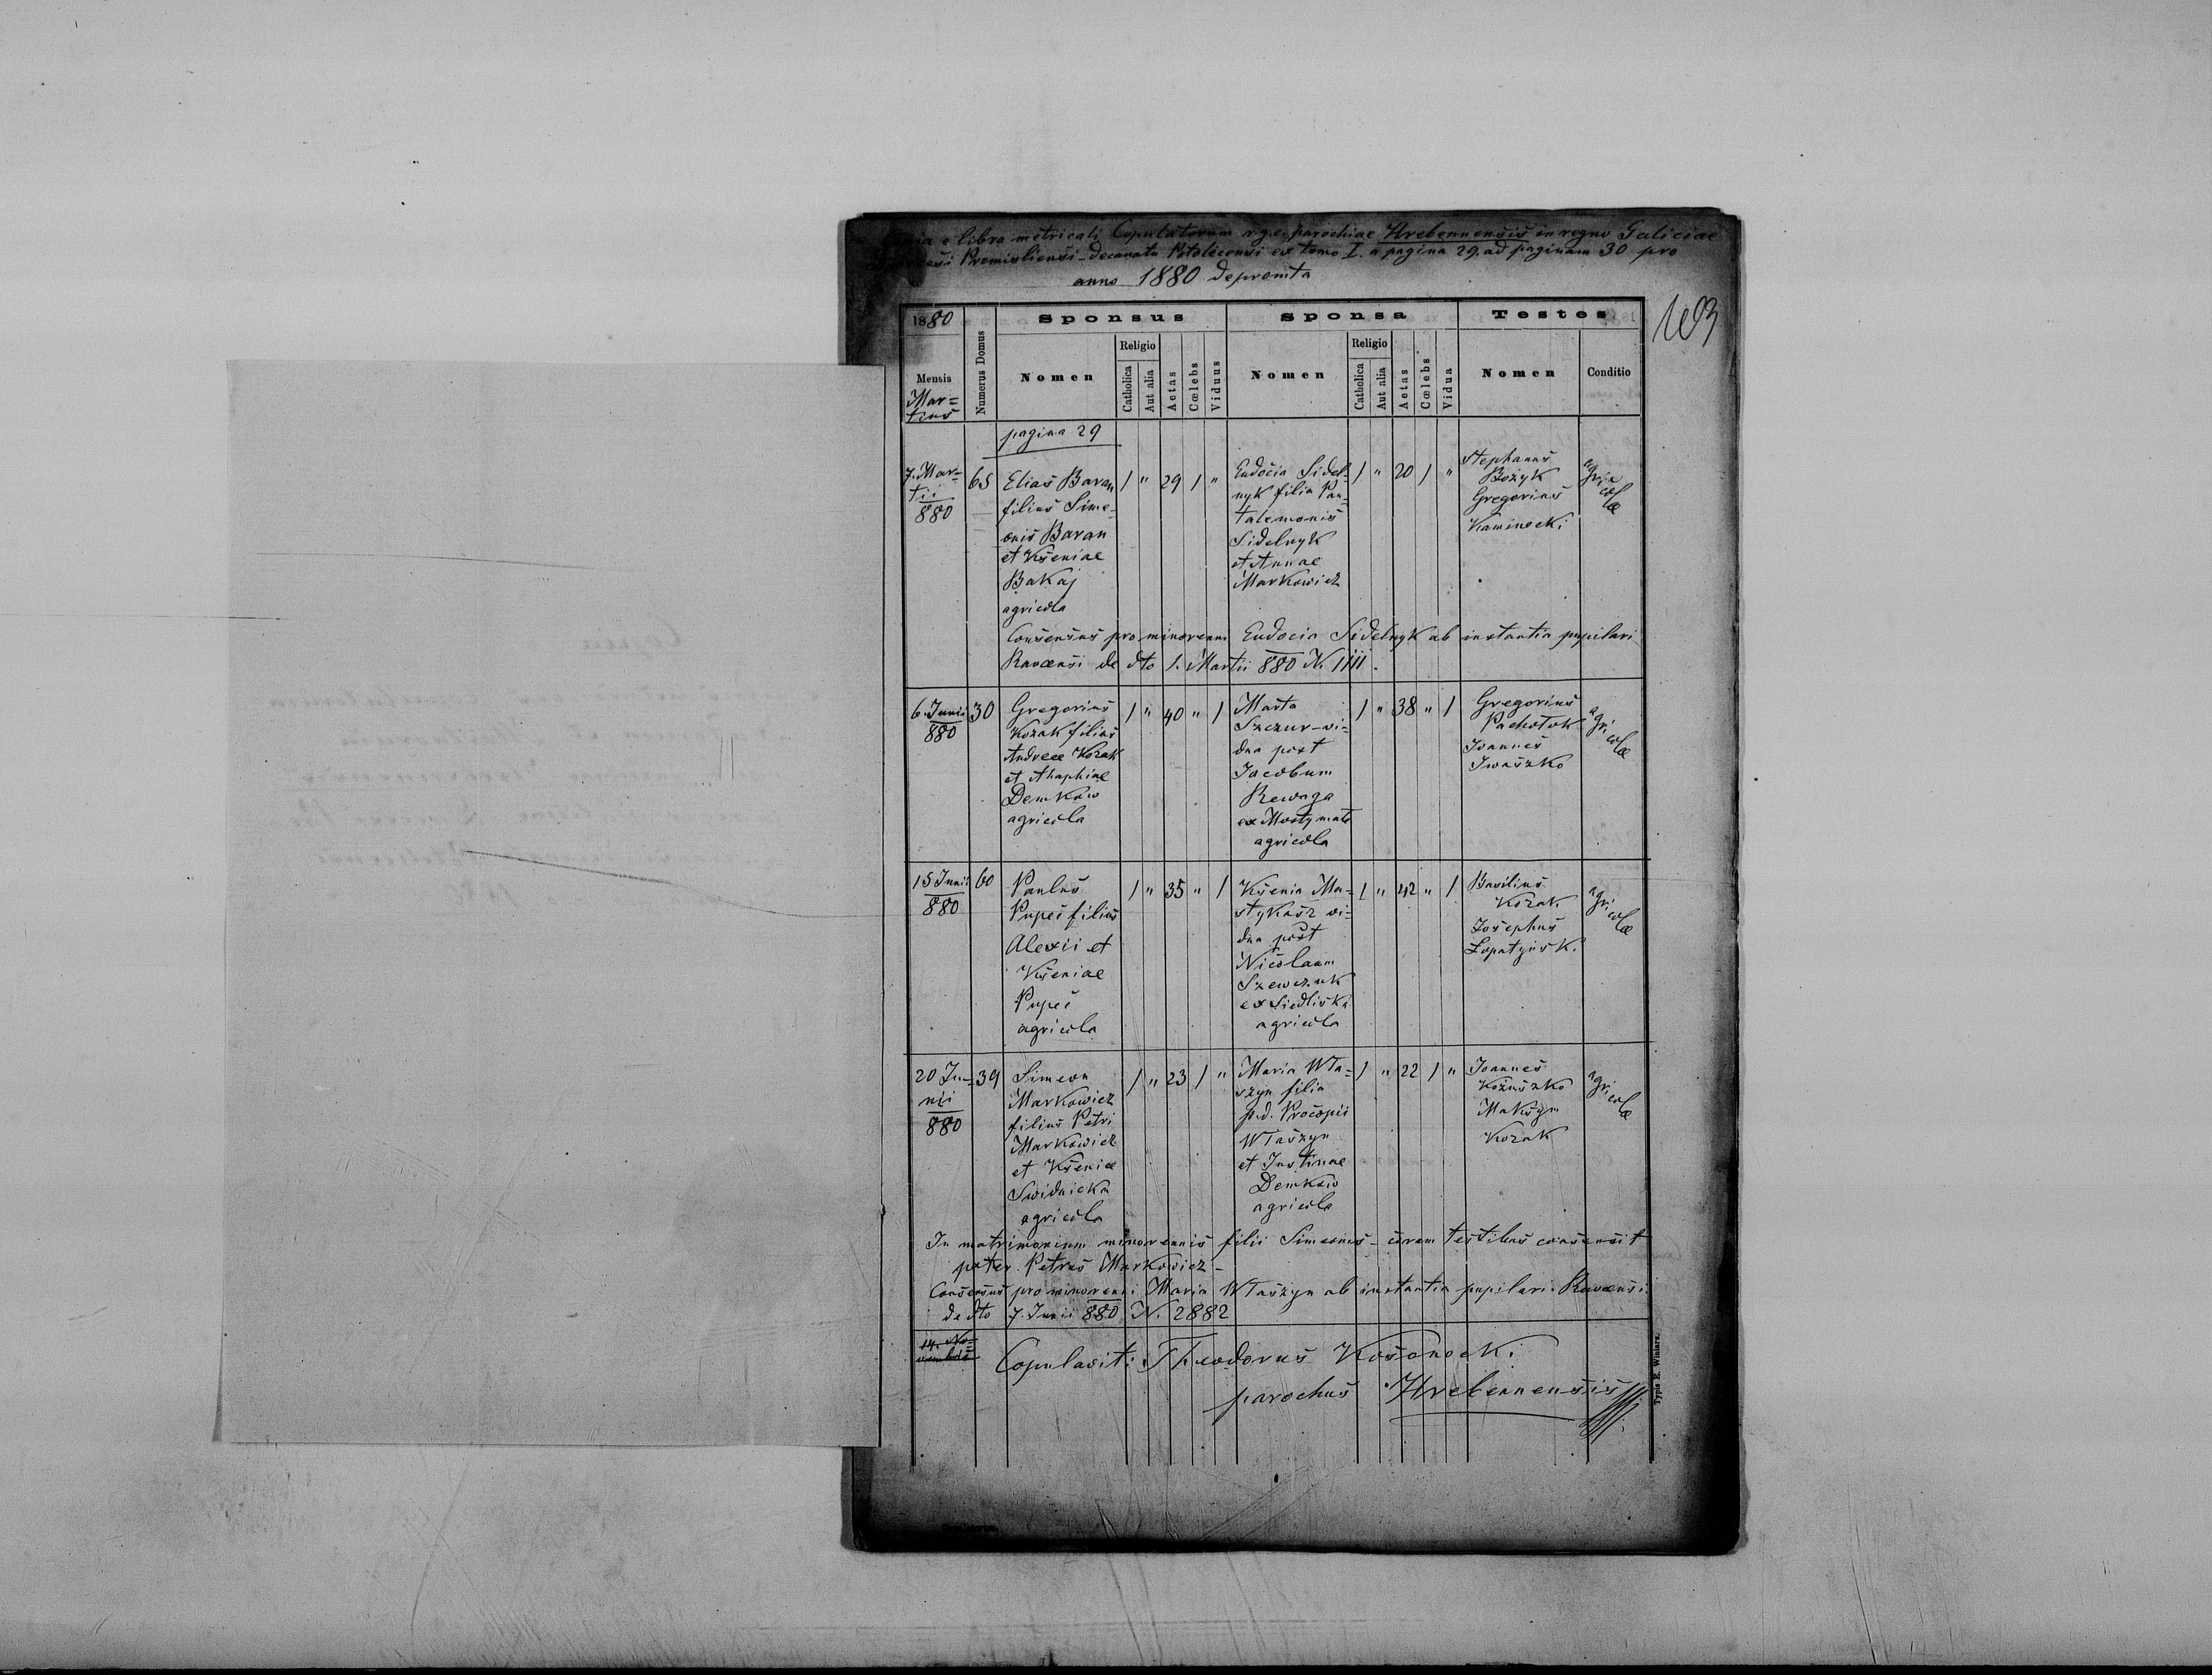 Copia e libro metricali Copulatorum r.g.c. parochiae Hrebennensis in regno Galiciae
Premisliensi - Decanatu Potolicensi ex tomo I. a pagina 29. ad paginam 30 pro
anno 1880 depromta
103
1880 Sponsus Sponsa Testes
Mensis Numerus Domus Nomen Religio Catholica Aut alia Aetas Cœlebs Viduus Nomen Religio Catholica Aut alia Aetas Cœlebs Vidua Nomen Conditio
Mar=
tius
pagina 29
7. Mar-
tii
880
65
Elias Baran
filius Sime-
onis Baran
et Kseniae
Bakaj
agricola
1 " 29 1 "
Eudocia Sidel-
nyk filia Pan-
talemonis
Sidelnyk
et Annae
Markowicz
1 " 20 1 "
Stephanus
Bożyk
Gregorius
Kaminecki
agricolæ
Consensus pro minorenni Eudocia Sidelnyk ab instantia pupilari
Ravaensi de dto 1. Martii 880 N. 1111.
6. Junii
880
30
Gregorius
Kozak filius
Andreæ Kozak
et Ahaphiae
Demków
agricola
1 " 40 " 1
Marta
Szczur - vi-
dua post
Jacobum
Rewaga
ex Mosty małe
agricola
1 " 38 " 1
Gregorius
Pachołok
Joannes
Iwaszko
agricolæ
15 Junii
880
60
Paulus
Pupeć filius
Alexii et
Kseniae
Pupeć
agricola
1 " 35 " 1
Ksenia Ma=
stykasz vi-
dua post
Nicolaum
Szewczuk
ex Siedliska
agricola
1 " 42 " 1
Basilius
Kozak
Josephus
Łopatyńsk.
agricolæ
20 Ju-
nii
880
39
Simeon
Markowicz
filius Petri
Markowicz
et Kseniæ
Swidnicka
agricola
1 " 23 1 "
Maria Wła=
szyn filia
p.d. Procopii
Właszyn
et Justinae
Demków
agricola
1 " 22 1 "
Joannes
Kożuszko
Maksym
Kozak
agricolæ
In matrimonium minorennis filii Simeonis - coram testibus consensit
pater Petrus Markowicz -
Consensus pro minorenni Maria Właszyn ab instantia pupilari Ravaensi
de dto 7. Junii 880 N. 2882
14. No=
vembris
Copulavit: Theodorus Kosonocki
parochus Hrebennensis
Typis E. Winiarz.